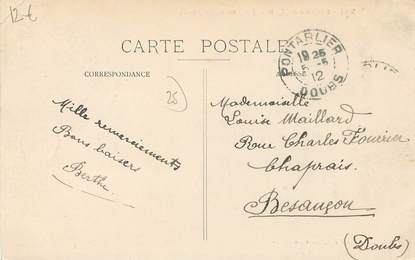 12-€
CARTE POSTALE
CORRESPONDANCE
25
PONTARLIER
19 25
-5
12
DOUBS
Mille remerciements
Bons baisers
Berthe
Mademoiselle
Louise Maillard
Rue Charles Fourier
Chaprais.
Besançon
(Doubs)